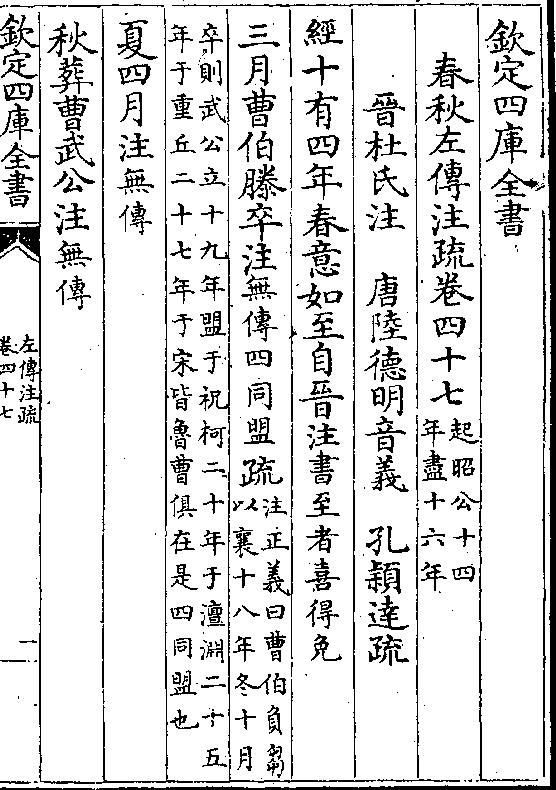 欽定四庫全書
春秋左傳注疏卷四十七起昭公十四
年盡十六年
晉杜氏注 唐陸德明音義 孔穎達疏
經十有四年春意如至自晉注書至者喜得免
三月曹伯滕卒注無傳四同盟疏注正義曰曹伯負芻
以襄十八年冬十月
卒則武公立十九年盟于祝柯二十年于澶淵二十五
年于重丘二十七年于宋皆魯曹俱在是四同盟也
夏四月注無傳
秋葬曹武公注無傳
欽定四庫全書
左傳注疏
卷四十七
一